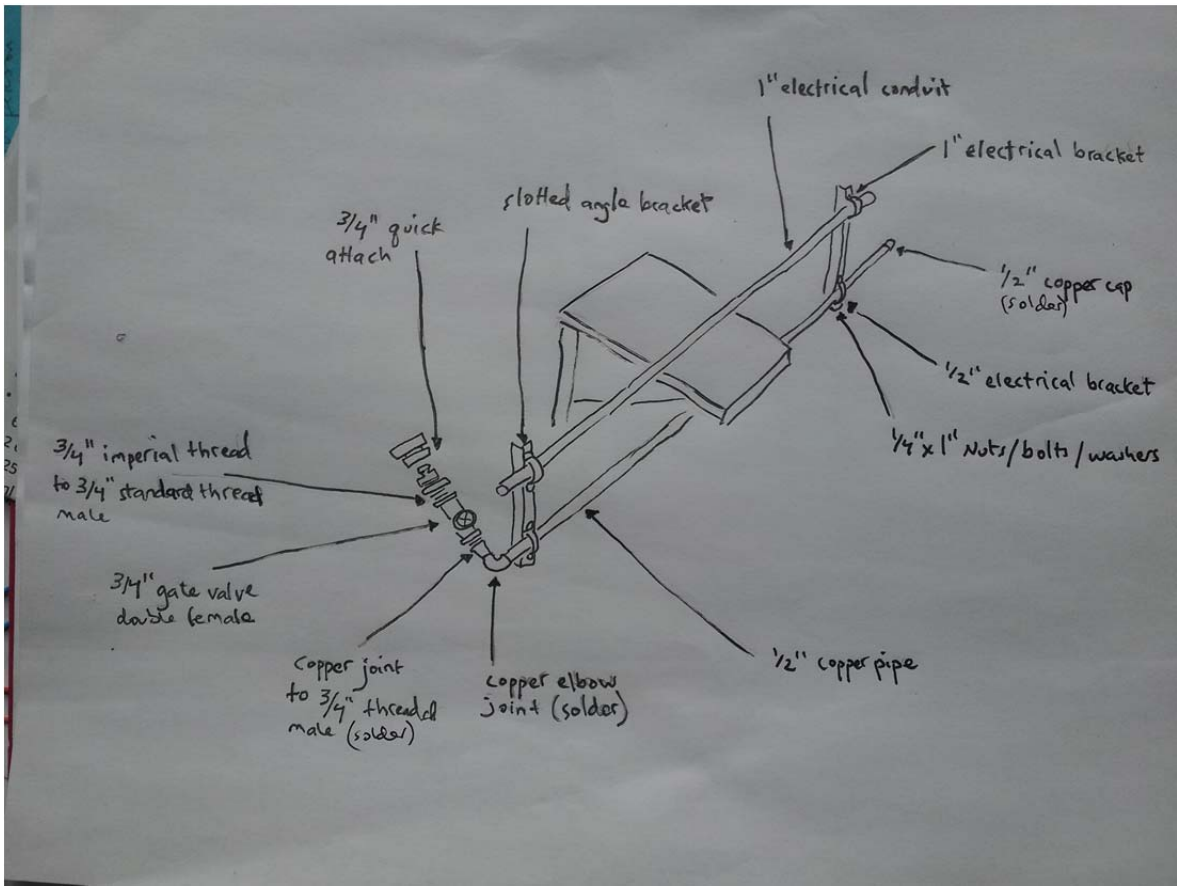 1" electrical conduit
1" electrical bracket
slotted angle bracket
3/4" quick
attach
1/2" copper cap
(solder)
1/2" electrical bracket
1/4" x 1" Nuts/bolts/washers
3/4" imperial thread
to 3/4" standard thread
male
3/4" gate valve
double female
copper joint
to 3/4" threaded
male (solder)
copper elbow
joint (solder)
1/2" copper pipe